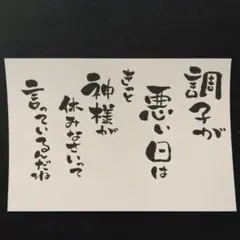 調子が
悪い日は
きっと
神様が
休みなさいって
言っているんだね